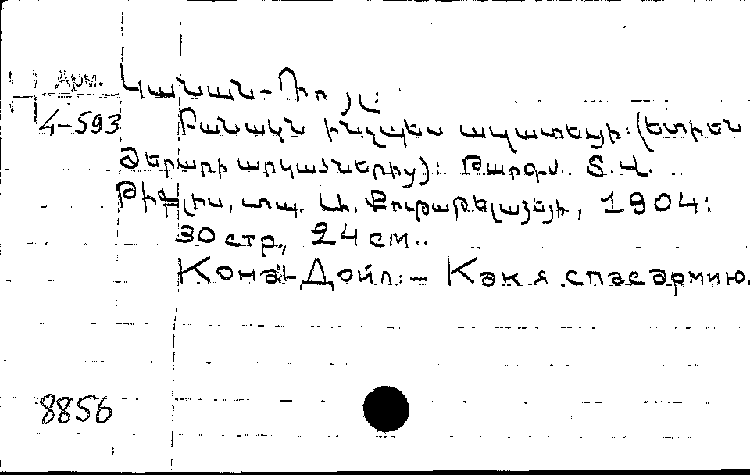 Арм.
Կանան-Դոյլ
4-593
Բանակն ինչպես ազատեցի: (Ետիեն
Ժերարի արկածներից): Թարգմ. Տ. Վ.
Թիֆլիս, տպ. Մ. 1904:
30 стр., 24 см..
Конан-Дойл. – Как я спас армию.
8856